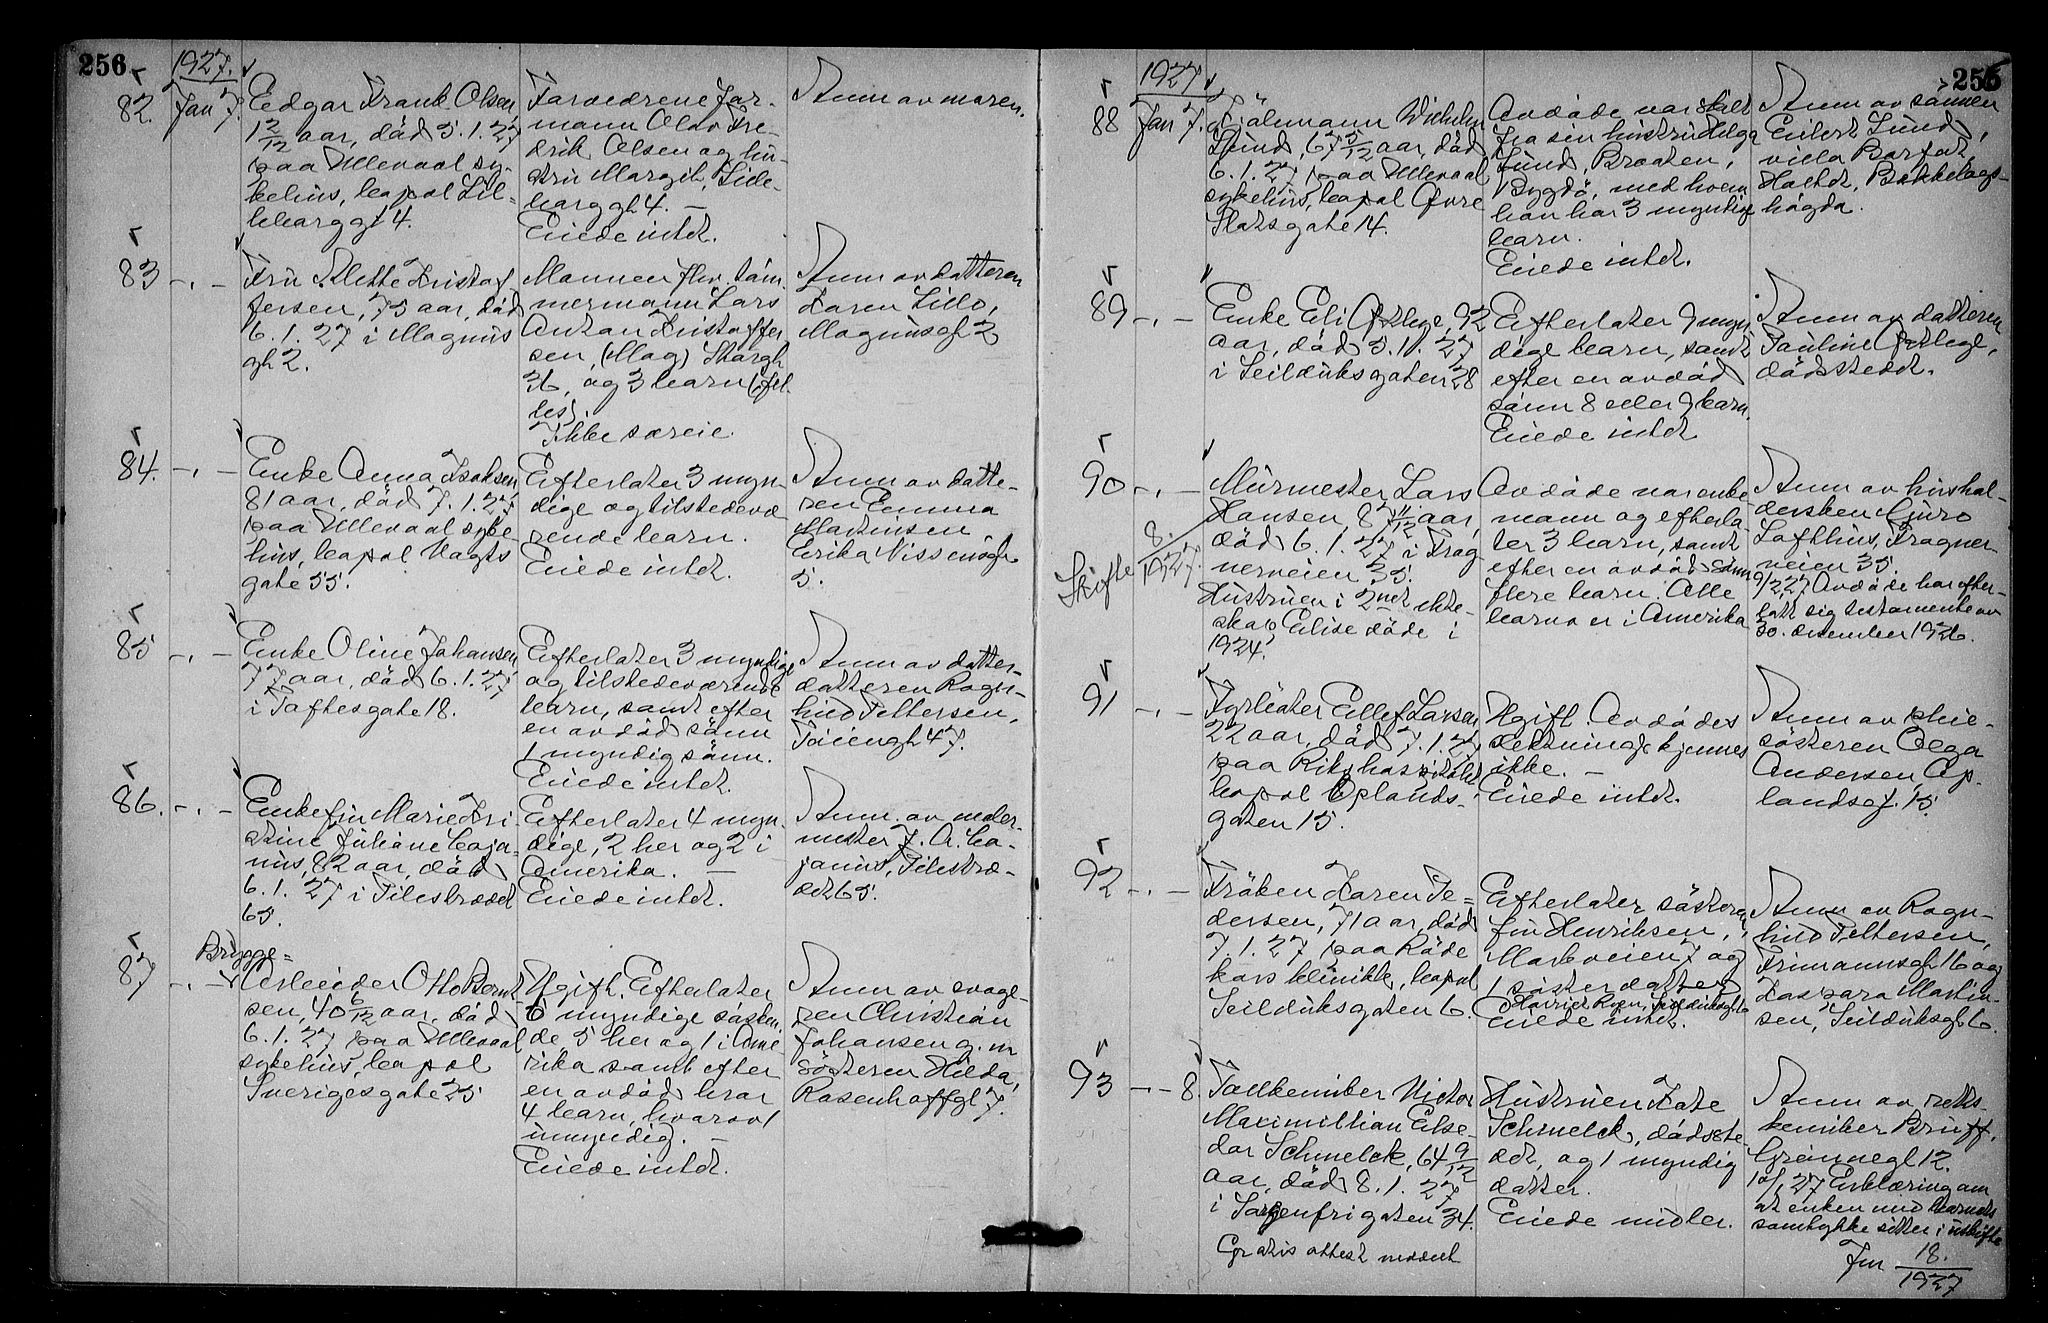 256
1927.
82. Jan 7. Edgar Frank Olsen,
1 2/12 aar, död 5.1.27
paa Ullevaal sy-
kehus, bopæl Lil-
leborggt 4.
Forældrene For-
mann Olav Fre-
drik Olsen og hu-
stru Margit, Lille-
borggt 4. —
Eiede intet.
Anm av moren.
83 -.- Fru Alette Kristof-
fersen, 75 aar, död
6.1.27 i Magnus
gt 2.
Mannen fhv. töm-
mermann Lars
Anton Kristoffer
sen, (Mag) Storgt
36, og 3 barn (fæl-
les).
Ikke særeie.
Anm av datteren
Karen Lillo,
Magnusgt 2
84. -.- Enke Anna Isaksen,
81 aar, död 7.1.27
paa Ullevaal syke
hus, bopæl Vogts
gate 55.
Efterlater 3 myn-
dige og tilstedevæ
rende barn.
Eiede intet.
Anm av datte-
ren Emma
Martinsen
Erika Nissensgt
5.
85 -.- Enke Oline Johansen
77 aar, död 6.1.27
i Toftesgate 18.
Efterlater 3 myndige
og tilstedeværende
barn, samt efter
en avdöd sönn
1 myndig sönn.
Eiede intet.
Anm av datter-
datteren Ragn-
hild Pettersen,
Töiengt 47.
86. -.- Enkefru Marie Kri
stine Juliane Caja-
nus, 82 aar, död
6.1.27 i Pilestrædet
65.
Efterlater 4 myn-
dige, 2 her og 2 i
Amerika. —
Eiede intet.
Anm. av maler-
mester J. A. Ca-
janus, Pilestræ-
det 65.
Brygge=
87 -.- arbeider Otto Bernt
sen, 40 6/12 aar, död
6.1.27 paa Ullevaal
sykehus, bopæl
Sverigesgate 25
Ugift. Efterlater
6 myndige sösken-
de, 5 her og 1 i Ame
rika samt efter
en avdöd bror
4 barn, hvorav 1
umyndig. —
Eiede intet.
Anm av svoge-
ren Christian
Johansen g. m
sösteren Hilda,
Rosenhoffgt 7.
256
1927
88 Jan 7. Hjalmann Vilhelm
Lund, 67 5/12 aar, död
6.1.27 paa Ullevaal
sykehus, bopæl Övre
Slotsgate 14.
Avdöde var skilt
fra sin hustru Helga
Lund, Braaten,
Bygdö, med hvem
han har 3 myndige
barn.
Eiede intet.
Anm av sönnen
Eilert Lund,
villa Borfot,
Holtet, Bekkelags-
högda.
89 -.- Enke Eli Östlye, 92
aar, död 5.11.27
i Seilduksgaten 28
Efterlater 9 myn
dige barn, samt
efter en avdöd
sönn 8 eller 9 barn.
Eiede intet
Anm av datteren
Pauline Östlye,
dödsstedet.
90 -.- Murmester Lars
Hansen, 87 11/12 aar,
död 6.1.27 i Frog
nerveien 35.
Hustruen i 2net ekte-
skap Elise döde i
1924.
Skifte 8./1927.
Avdöde var enke
mann og efterla
ter 3 barn, samt
efter en avdöd sönn
flere barn. Alle
barna er i Amerika
Anm av hushol-
dersken Guro
Lofthus, Frogner-
veien 35.
9/2 27 Avdöde har efter-
latt sig testamente av
30. desember 1926.
91 -.- Fyrböter Ellef Larsen
22 aar, död 7.1.27
paa Rikshospitalet
bopæl Oplands-
gaten 15.
Ugift. Avdödes
slektninger kjennes
ikke. —
Eiede intet.
Anm av pleie-
sösteren Olga
Andersen, Op-
landsgt. 15.
92 -.- Fröken Karen Pe=
dersen, 71 aar, död
7.1.27 paa Röde
kors klinikk, bopæl
Seilduksgaten 6.
Efterlater sösteren
fru Henriksen,
Markveien 7 og
1 sösterdatter
Harriet Roen, Seilduksgt 6
Eiede intet.
Anm av Ragn-
hild Pettersen,
Frimannsgt 16 og
Kaspara Martin-
sen, Seilduksgt 6
93 -- 8. Tollkemiker Victor
Maximillian Else-
dor Schmelck, 64 9/12
aar, död 8.1.27
i Sorgenfrigaten 34.
Gratis attest meddelt
Hustruen Kate
Schmelck, dödsste-
det, og 1 myndig
datter.
Eiede midler.
Anm av retts-
kemiker Bruff,
Grönnegt 12.
12/1 27 Erklæring om
at enken med barnets
samtykke sitter i uskifte
Jnr 18./1927